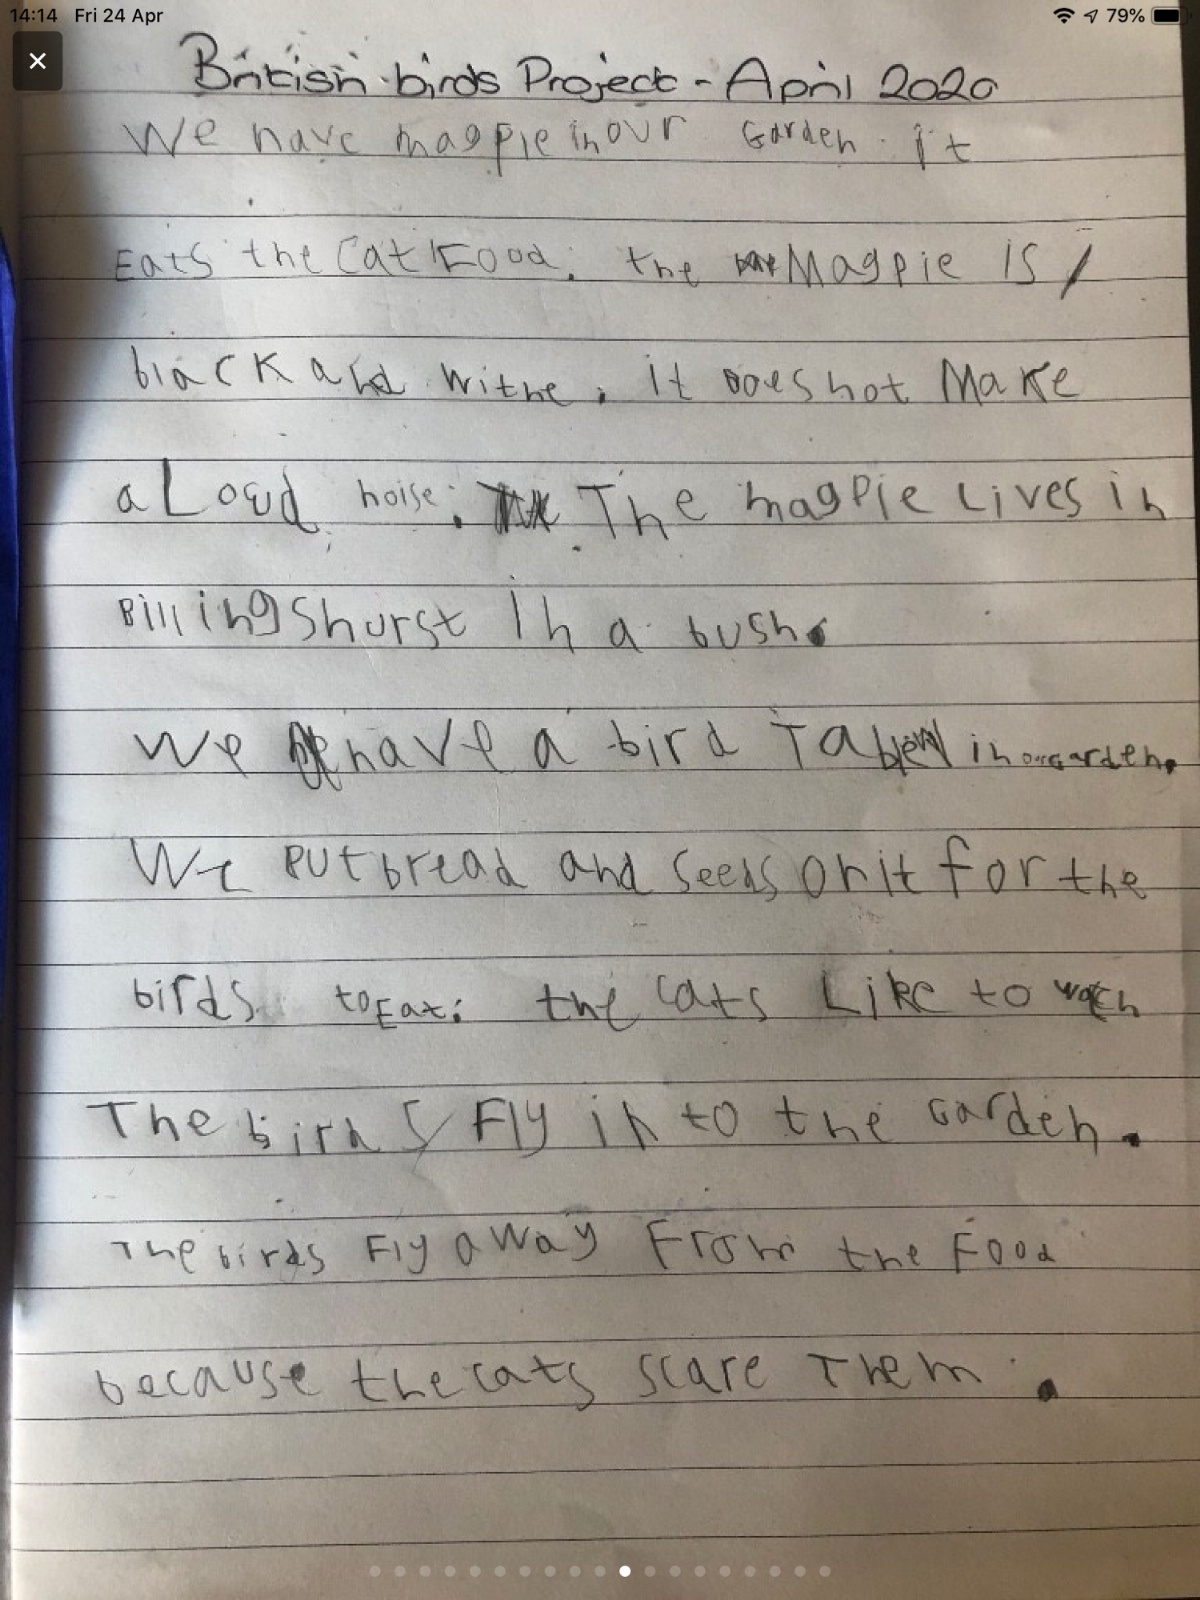 14:14 Fri 24 Apr 79%
British birds Project - April 2020
We have magpie in our Garden. it
Eats the Cat Food. the Magpie is
black and withe. it Does not Make
a Loud noise. The magpie Lives in
Billingshurst In a bush.
We have a bird Table in our Garden.
We Put bread and Seeds on it for the
birds to Eat. the Cats Like to wach
The birds Fly in to the Garden.
The birds Fly away From the Food
because the cats scare Them.